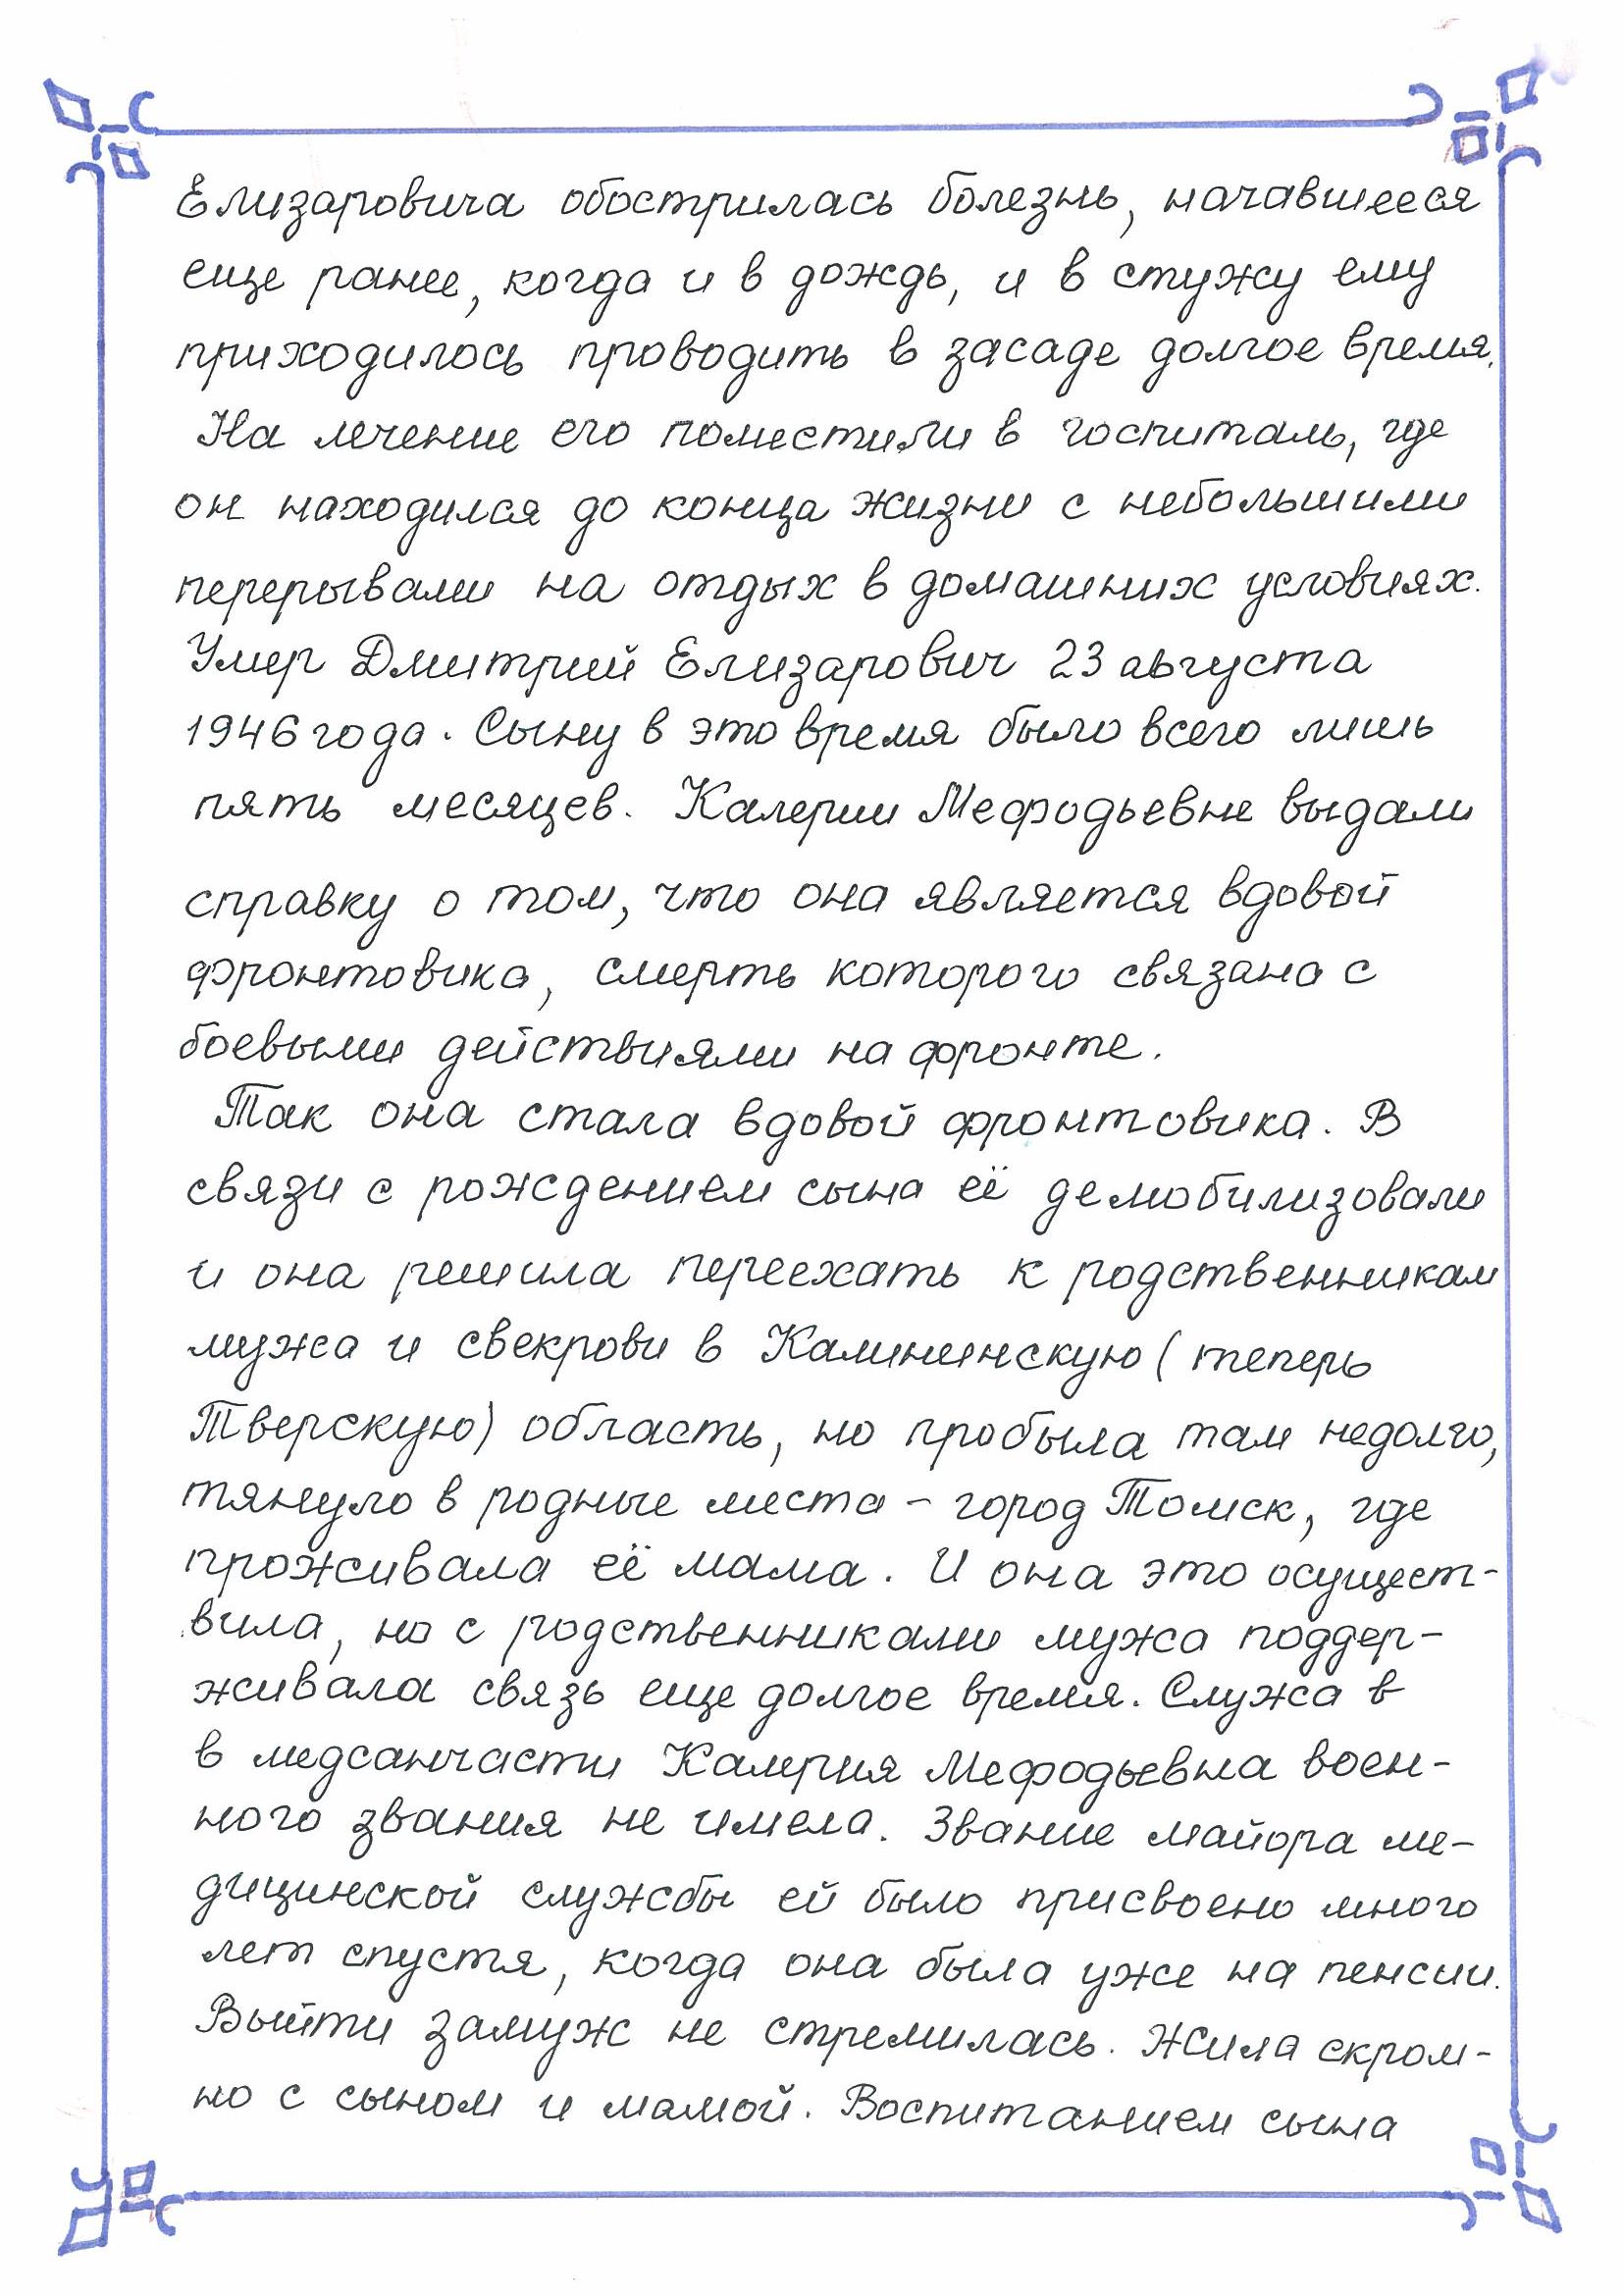 Елизаровича обострилась болезнь, начавшееся
еще ранее, когда и в дождь, и в стужу ему
приходилось проводить в засаде долгое время.
На лечение его поместили в госпиталь, где
он находился до конца жизни с небольшими
перерывами на отдых в домашних условиях.
Умер Дмитрий Елизарович 23 августа
1946 года. Сыну в это время было всего лишь
пять месяцев. Калерии Мефодьевне выдали
справку о том, что она является вдовой
фронтовика, смерть которого связана с
боевыми действиями на фронте.
Так она стала вдовой фронтовика. В
связи с рождением сына её демобилизовали
и она решила переехать к родственникам
мужа и свекрови в Калининскую (теперь
Тверскую) область, но пробыла там недолго,
тянуло в родные места – город Томск, где
проживала её мама. И она это осущест-
вила, но с родственниками мужа поддер-
живала связь еще долгое время. Служа в
в медсанчасти Калерия Мефодьевна воен-
ного звания не имела. Звание майора ме-
дицинской службы ей было присвоено много
лет спустя, когда она была уже на пенсии.
Выйти замуж не стремилась. Жила скром-
но с сыном и мамой. Воспитанием сына